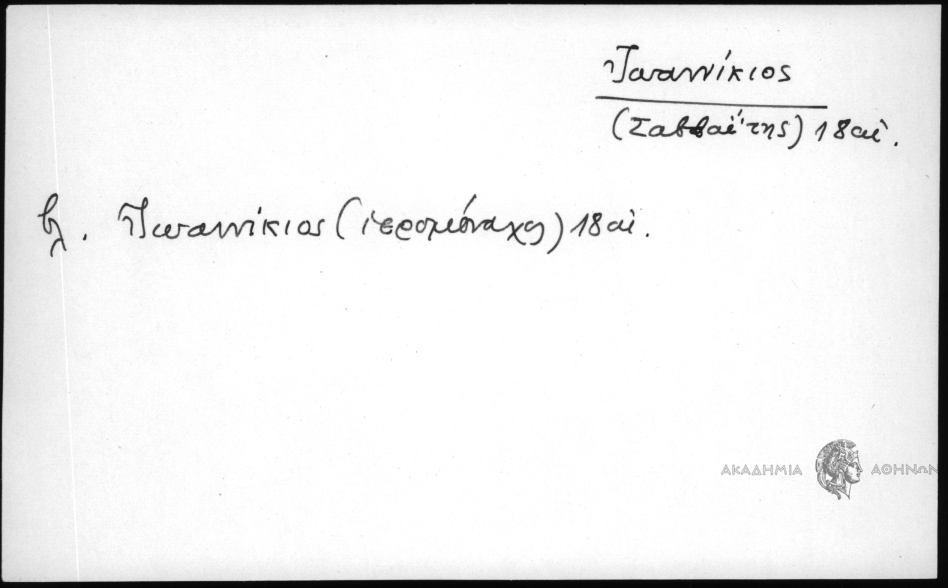 Ἰωαννίκιος
(Σαββαΐτης) 18 αἰ.
βλ. Ἰωαννίκιος (ἱερομόναχος) 18 αἰ.
ΑΚΑΔΗΜΙΑ ΑΘΗΝΩΝ